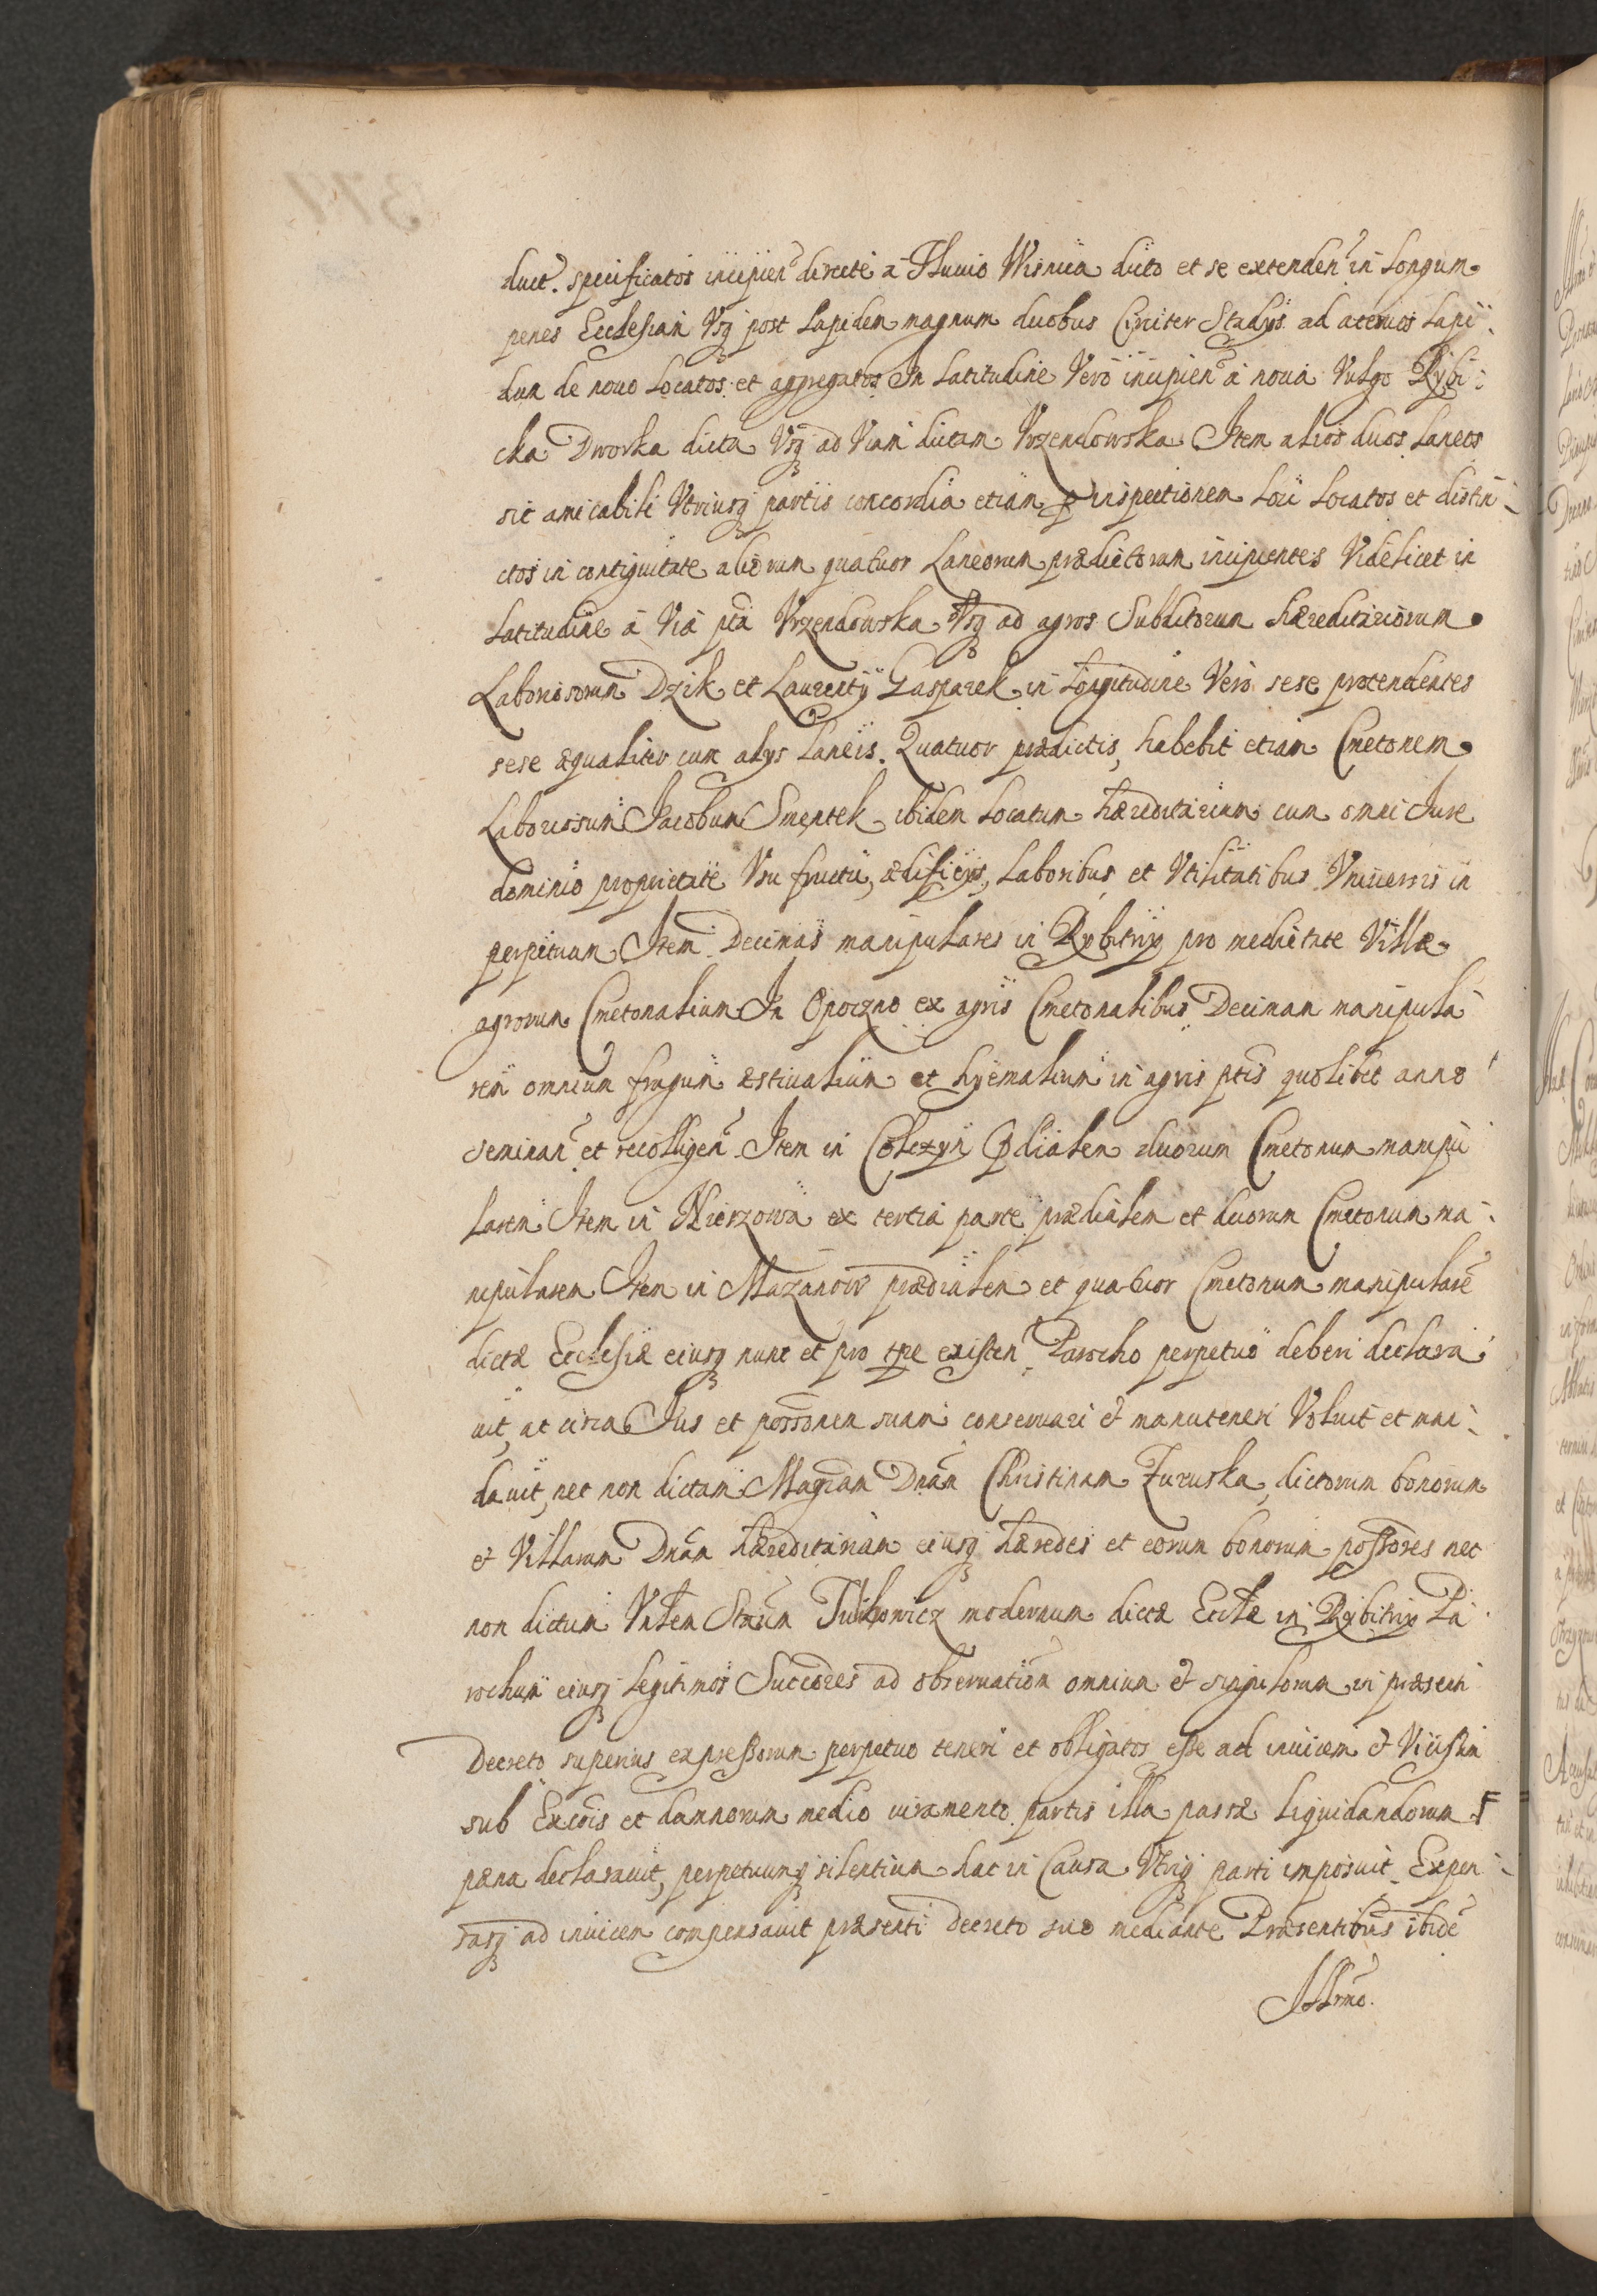 duct. specificatos incipien directe a Fluuio Wisnica dicto et se extenden in Longum
penes Ecclesiam Vsq post Lapidem magnum duobus Stadijs ad aceruos Lapi-
dum de nouo Locatos et aggregatos In Latitudine Vero incipien a noua Vulgo Rybi-
cka Dworka dicta Vsq ad Viam dictam Vrzendowska Item alios duos Laneos
sic amicabili Vtriusq partis concordia etiam p inspectionem Loci Locatos et distin-
ctos in contiguitate aliorum quatuor Laneorum prædictorum incipientes Videlicet in
Latitudine a Via pta Vrzendowska Vsq ad agros Subditorum hæreditariorum
Laboriosorum Dzik et Laurentij Gasparek in Longitudine Vero sese protendentes
sese æqualiter cum alijs Laneis Quatuor prædictis, habebit etiam Cmetonem
Laboriosum Jacobum Smentek ibidem Locatum hæreditarium cum omni Jure
dominio proprietate Vsu fructu, ædificijs, Laboribus et Vtilitatibus Vniuersis in
perpetuum Item Decimas manipulares in Rybitwy pro medietate Villæ
agrorum Cmetonalium In Opoczno ex agris Cmetonalibus Decimam manipula-
rem omnium frugum æstiualium et hyemalium in agris ptis quolibet anno
seminan et recolligen Item in Cholczyn Prdialem duorum Cmetonum manipu
larem Item in Nierzowa ex tertia parte prædialem et duorum Cmetonum ma-
nipularem Item in Mazanow prædialem et quatuor Cmetonum manipulare
dictæ Ecclesiæ eiusq nunc et pro tpe existen Parocho perpetuo deberi declara-
uit, ac circa Jus et possonem suam conseruari & manuteneri Voluit et man-
dauit, nec non dictam Magcam Dnam Christinam Zuruska, dictorum bonorum
& Villarum Dnam hæreditariam eiusq hæredes et eorum bonorum possores nec
non dictum Vnlem Stanm Tulkowicz modernum dictæ Ecclæ in Rybitwy Pa-
rochum eiusq Legitimos Succores ad obseruationm omnium & singulorum in præsenti
Decreto superius expressorum perpetuo teneri et obligatos esse ad inuicem & Vicissim
sub Excois et damnorum medio iuramento partis illa passæ Liquidandorum
pæna declarauit, perpetuumq silentium hac in Causa Vtriq parti imposuit Expen-
sasq ad inuicem compensauit præsenti decreto suo mediante Præsentibus ibide
Illrmo.